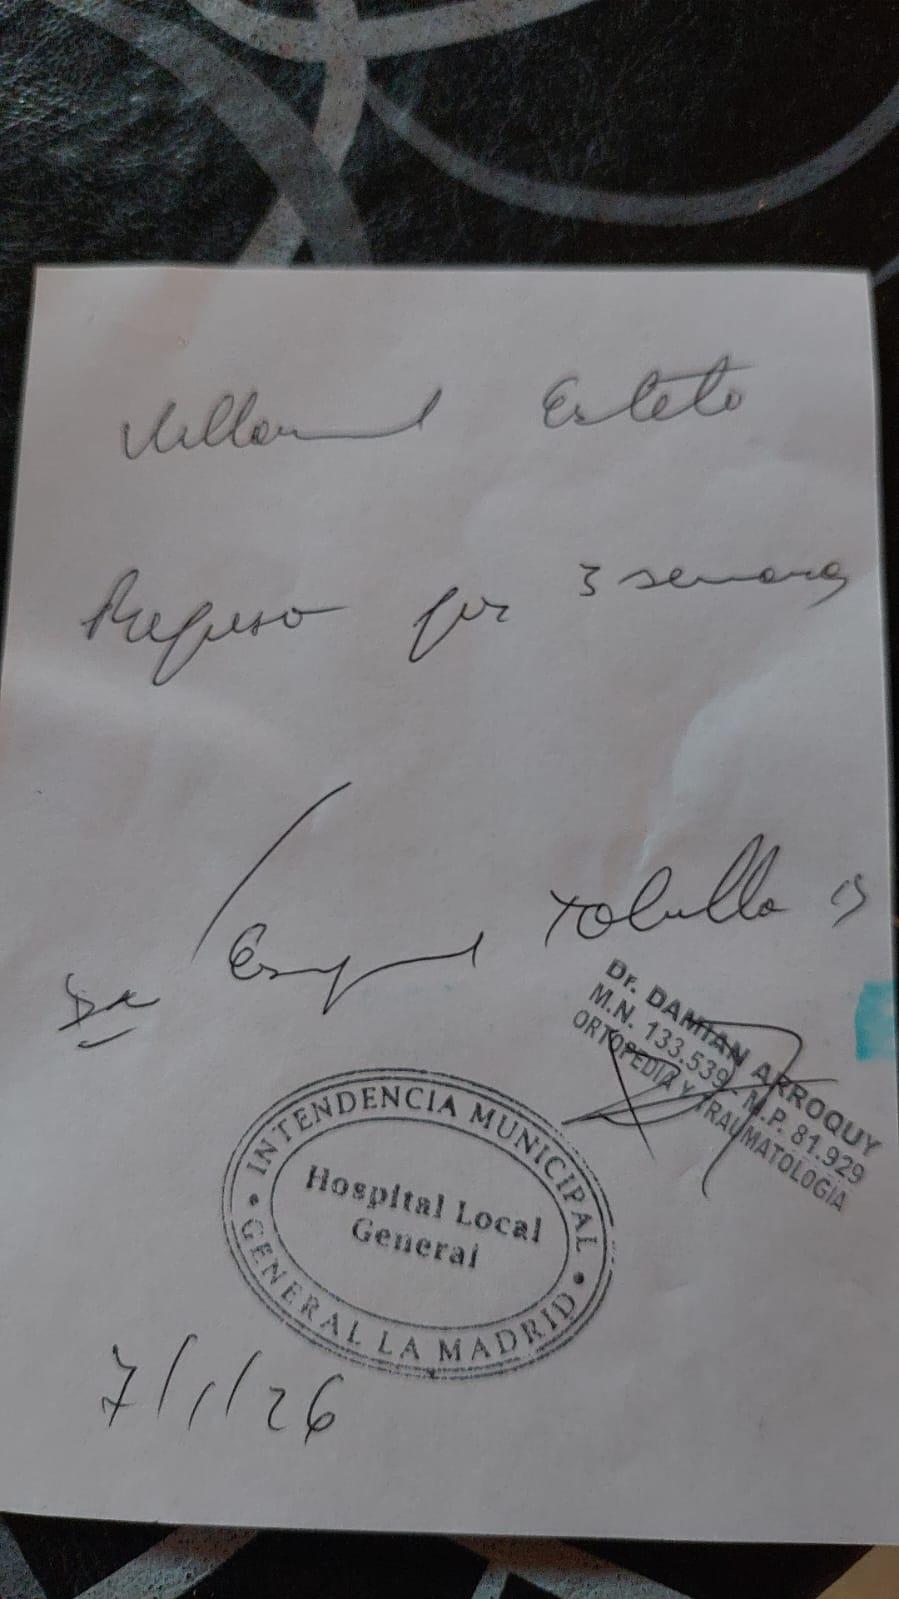 Villarruel Estela
Reposo por 3 semanas
Dx Esguince Tobillo
Dr. DAMIAN ARROQUY
M.N. 133.539 - M.P. 81.929
ORTOPEDIA Y TRAUMATOLOGIA
INTENDENCIA MUNICIPAL
Hospital Local
General
GENERAL LA MADRID
7/1/26